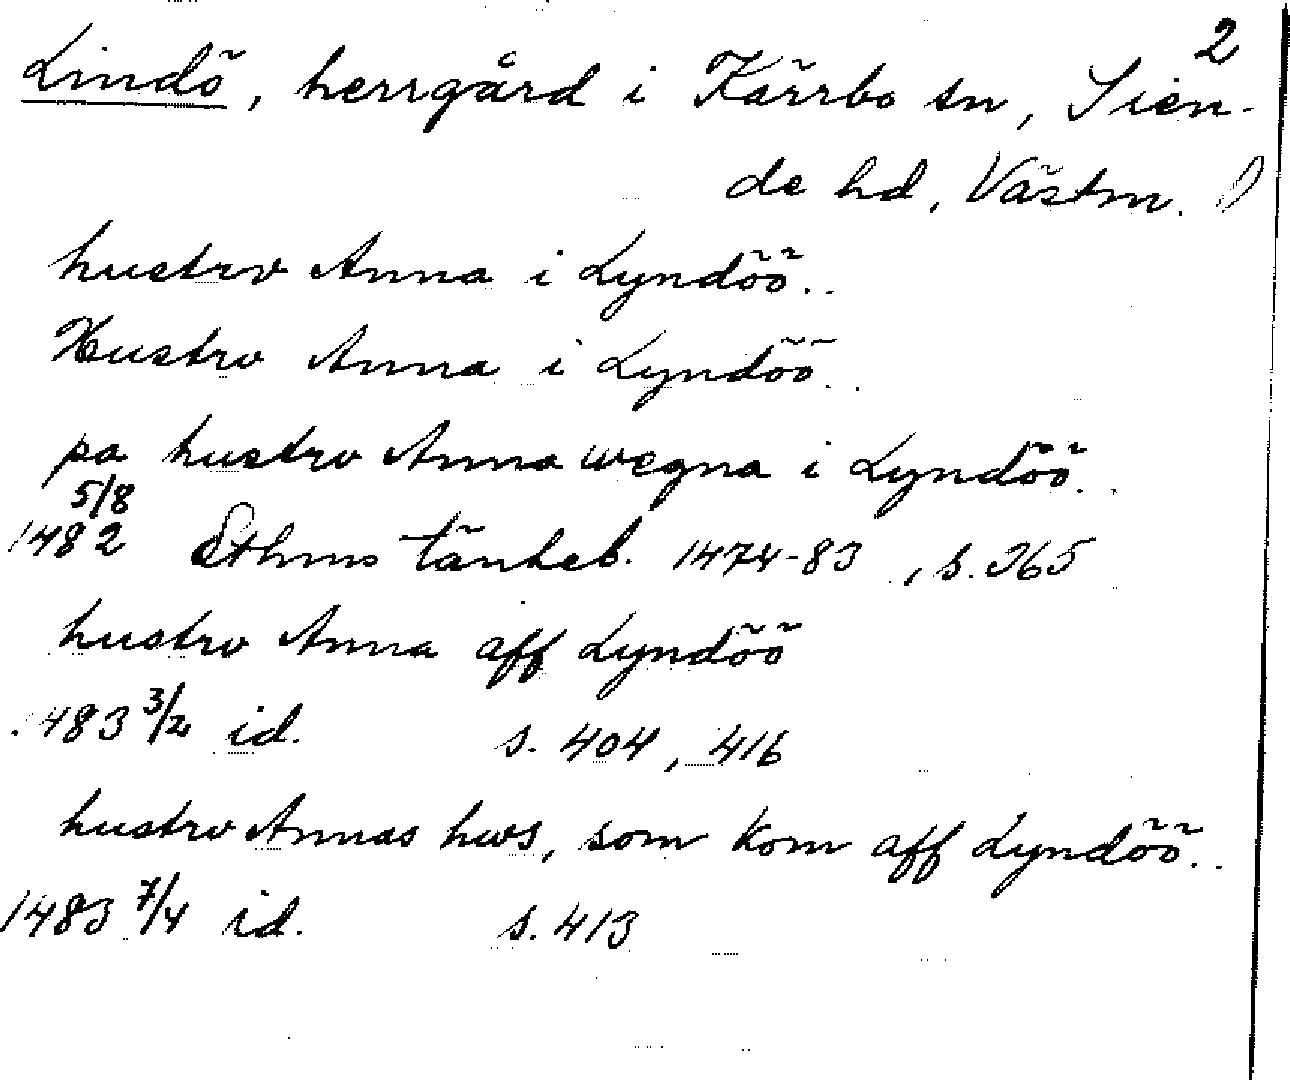 2
Lindö, herrgård i Kärrbo sn, Sien-
de hd, Västm.
hustrv Anna i Lyndöö..
Hustrv Anna i Lyndöö..
pa hustrv Anna wegna i Lyndöö..
5/8
1482 Sthms tänkeb. 1474-83, s. 365
hustrv Anna aff Lyndöö
1483 3/2 id. s. 404, 416
hustrv Annas hws, som kom aff Lyndöö..
1483 7/4 id. s. 413